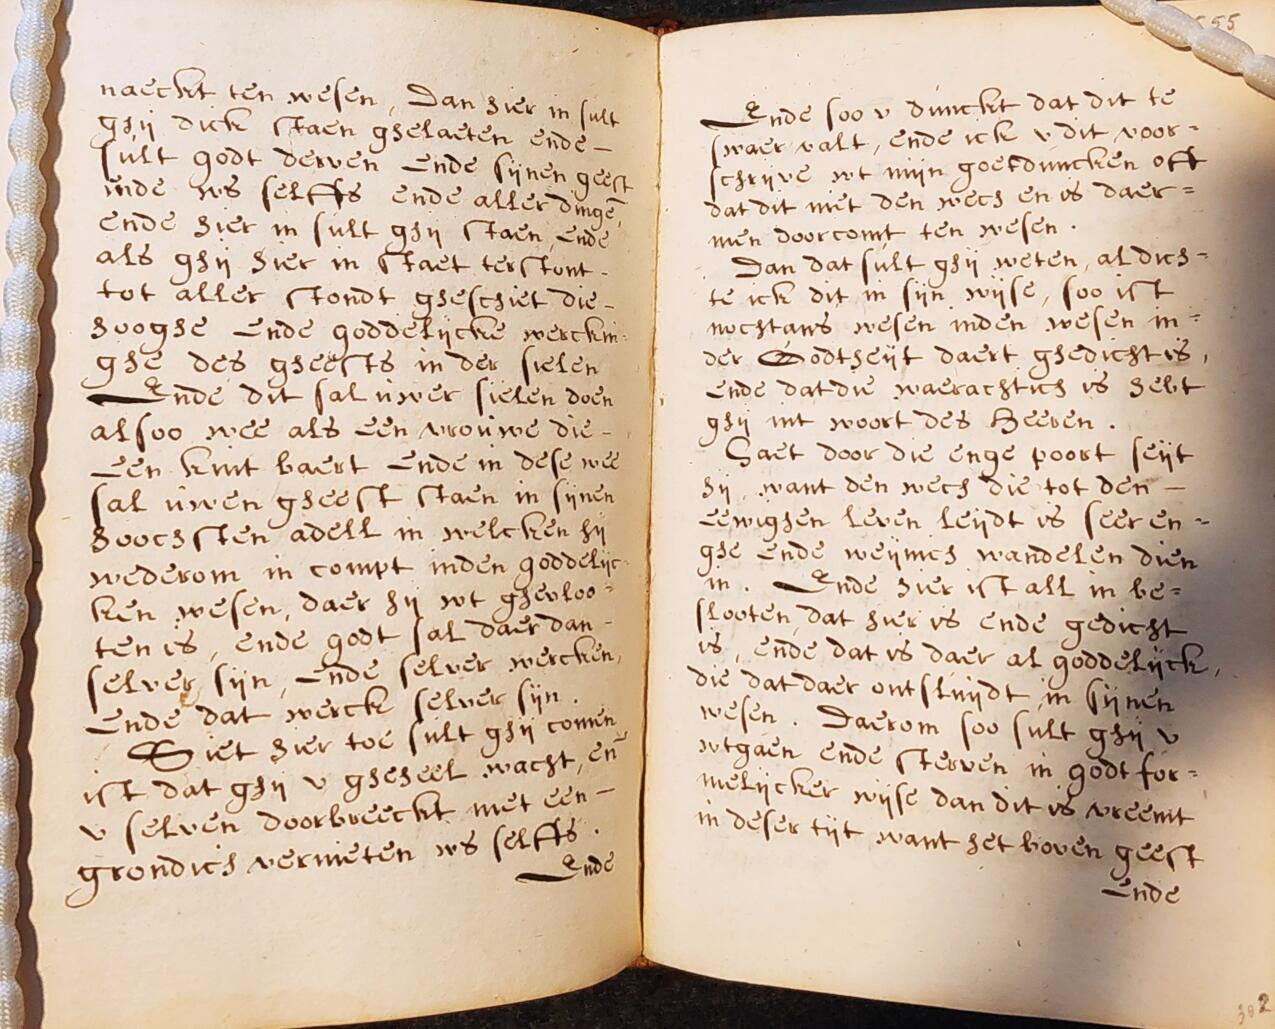 naeckt ten wesen, Dan hier in sult
ghij dick staen ghelaeten ende –
sult godt derven Ende sijnen geest
inde ws selffs ende aller dingē,
ende hier in sult ghij staen, Ende
als ghij hier in staet terstont -
tot aller stondt gheschiet die -
hooghe Ende goddelijcke werckin-
ghe des gheests in der sielen
Ende dit sal uwer sielen doen
alsoo wee als Een vrouwe die -
Een kint baert Ende in dese wee
sal uwen gheest staen in sijnen
hoochsten adell in welcken hij
wederom in compt inden goddelijc-
ken wesen, daer hij wt ghevloo=
ten is, ende godt sal daer dan -
selver sijn, Ende selver wercken,
Ende dat werck selver sijn.
Siet hier toe sult ghij comen
ist dat ghij v gheheel wacht, eñ
v selven doorbreeckt met een –
grondich vernieten ws selffs.
Ende
555
Ende soo v dunckt dat dit te
swaer valt, ende ick v dit voor=
schrijve wt mijn goetduncken off
dat dit niet den wech en is daer=
men doorcomt ten wesen.
Dan dat sult ghij weten, al dich=
te ick dit in sijn wijse, soo ist
nochtans wesen inden wesen in=
der Godtheijt daert ghedicht is,
Ende dat die waerachtich is hebt
ghij int woort des Heeren.
Gaet door die enge poort seijt
hij, want den wech die tot den –
Eewighen leven leijdt is seer en=
ghe Ende weijnich wandelen dien
in. Ende hier ist all in be=
slooten, dat hier is ende gedicht
is, ende dat is daer al goddelijck,
die dat daer ontsluijdt in sijnen
wesen. Daerom soo sult ghij v
wtgaen Ende sterven in godt for=
melijcker wijse dan dit is vreemt
in deser tijt want het boven geest
Ende
302